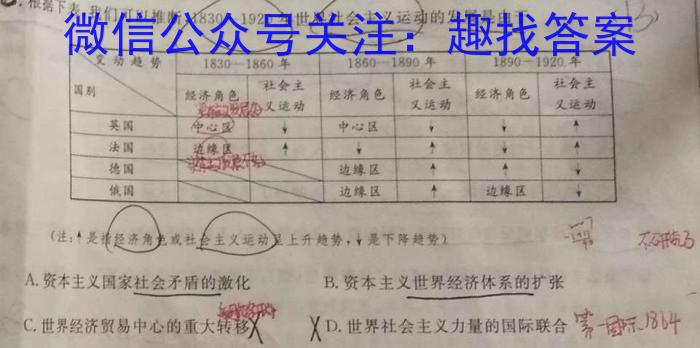 根据下表,我们可以推断,1830—1920年世界社会主义运动的发展是由于
微信公众号关注：趣找答案
变动趋势 1830—1860年 1860—1890年 1890—1920年
国别 经济角色 社会主义运动 经济角色 社会主义运动 经济角色 社会主义运动
英国 中心区 ↓ 中心区 ↓ ↓ ↑
法国 边缘区 ↑ ↓ ↑ ↑ ↑
德国 边缘区 ↑ ↑ ↓
俄国 边缘区 ↑ 边缘区 ↓
(注:↑是指经济角色或社会主义运动呈上升趋势,↓是下降趋势)
A.资本主义国家社会矛盾的激化 B.资本主义世界经济体系的扩张
C.世界经济贸易中心的重大转移 D.世界社会主义力量的国际联合 第一国际 1864